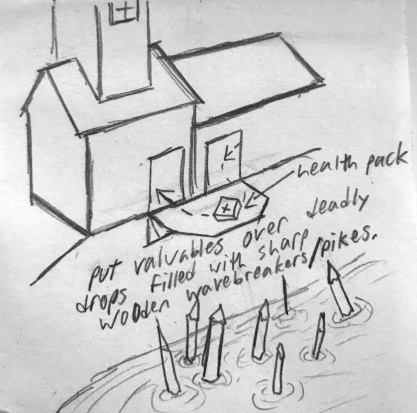 health pack
put valuables over deadly
drops filled with sharp
wooden wavebreakers/pikes.